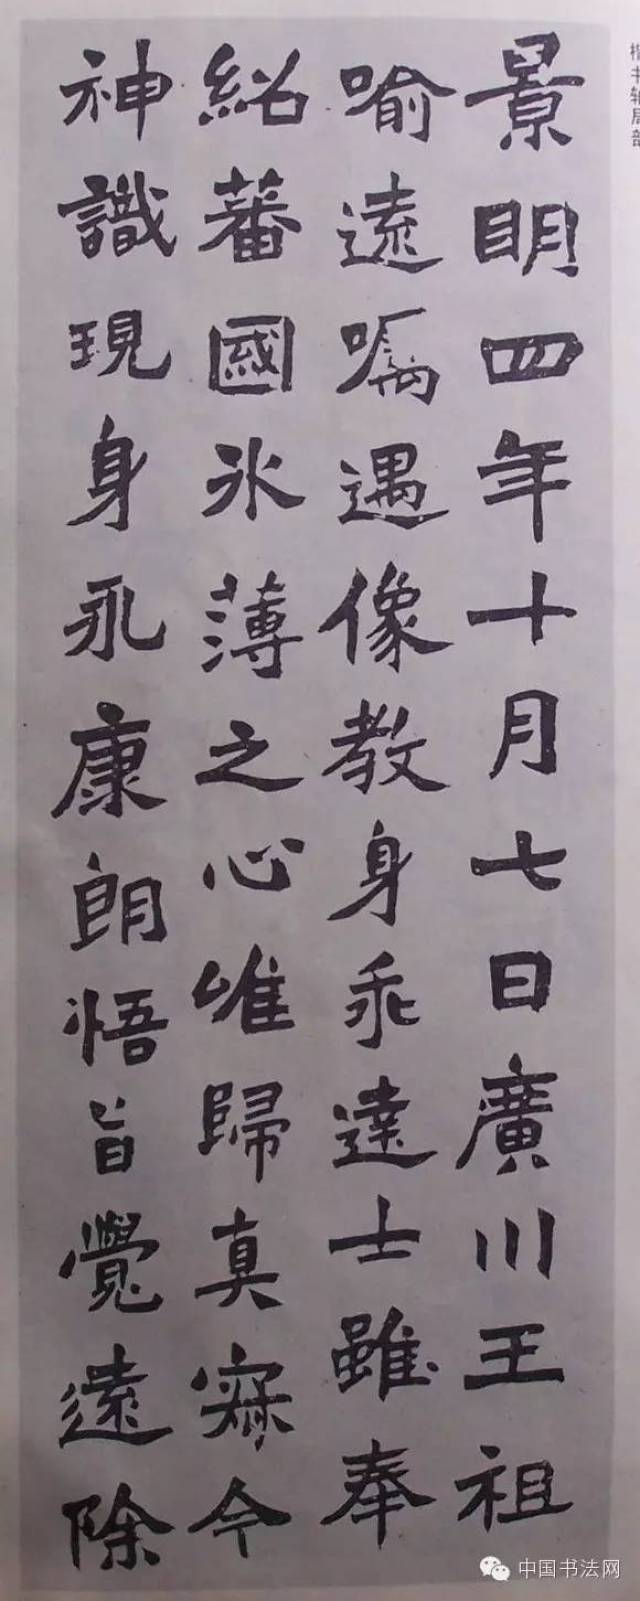 景明四年十月七日廣川王祖
喻遠嘱遇像教身乖達士雖奉
紹蕃國氷薄之心唯歸真寂今
神識現身永康朗悟旨覺遠除
楷书轴局部
中国书法网